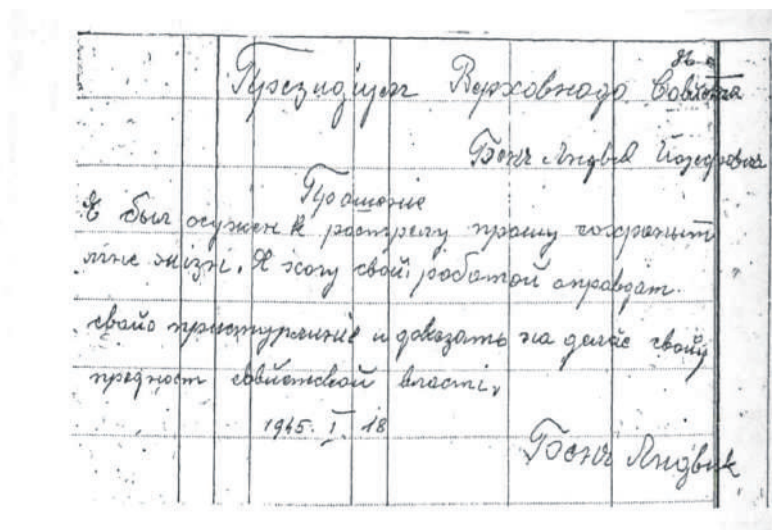 Президиум Верховнадо Совiета
Бенч Людвик Йозефович
Прошение
Я был осужен к розстрелу прошу сохранит
мне жiзнi. Я хочу своiй роботой оправдат.
свойо приступлиниe и доказать на делае своий
предност совiетской власти,
1945. I. 18
Бенч Людвик